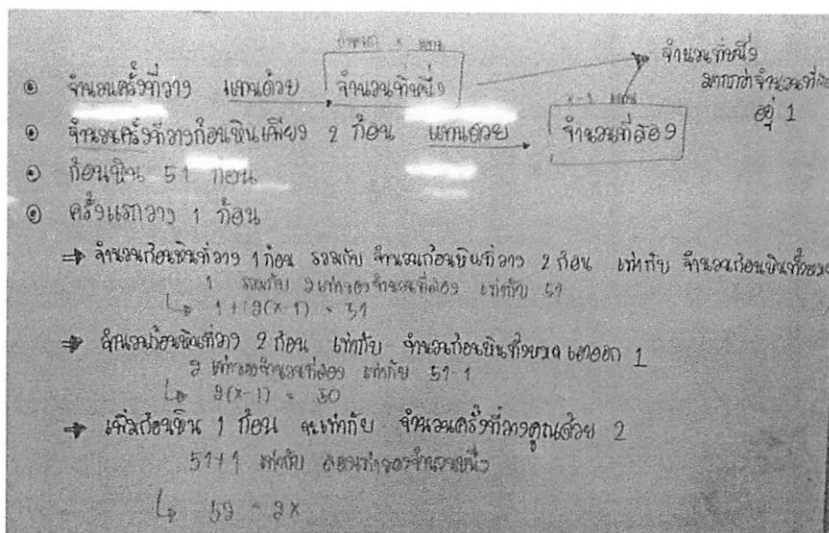 จำนวนที่หนึ่ง
มากกว่าจำนวนที่สอง
อยู่ 1
จำนวนครั้งที่วาง แทนด้วย จำนวนที่หนึ่ง
x-1 แทน
จำนวนครั้งที่วางก้อนหินเพียง 2 ก้อน แทนด้วย จำนวนที่สอง
ก้อนหิน 51 ก้อน
ครั้งแรกวาง 1 ก้อน
⇒ จำนวนก้อนหินที่วาง 1 ก้อน รวมกับ จำนวนก้อนหินที่วาง 2 ก้อน เท่ากับ จำนวนก้อนหินทั้งหมด
1 รวมกับ 2 เท่าของจำนวนที่สอง เท่ากับ 51
↳ 1+2(x-1) = 51
⇒ จำนวนก้อนหินที่วาง 2 ก้อน เท่ากับ จำนวนก้อนหินทั้งหมด เอาออก 1
2 เท่าของจำนวนที่สอง เท่ากับ 51-1
↳ 2(x-1) = 50
⇒ เพิ่มก้อนหิน 1 ก้อน จะเท่ากับ จำนวนครั้งที่วางคูณด้วย 2
51+1 เท่ากับ สองเท่าของจำนวนหนึ่ง
↳ 52 = 2x